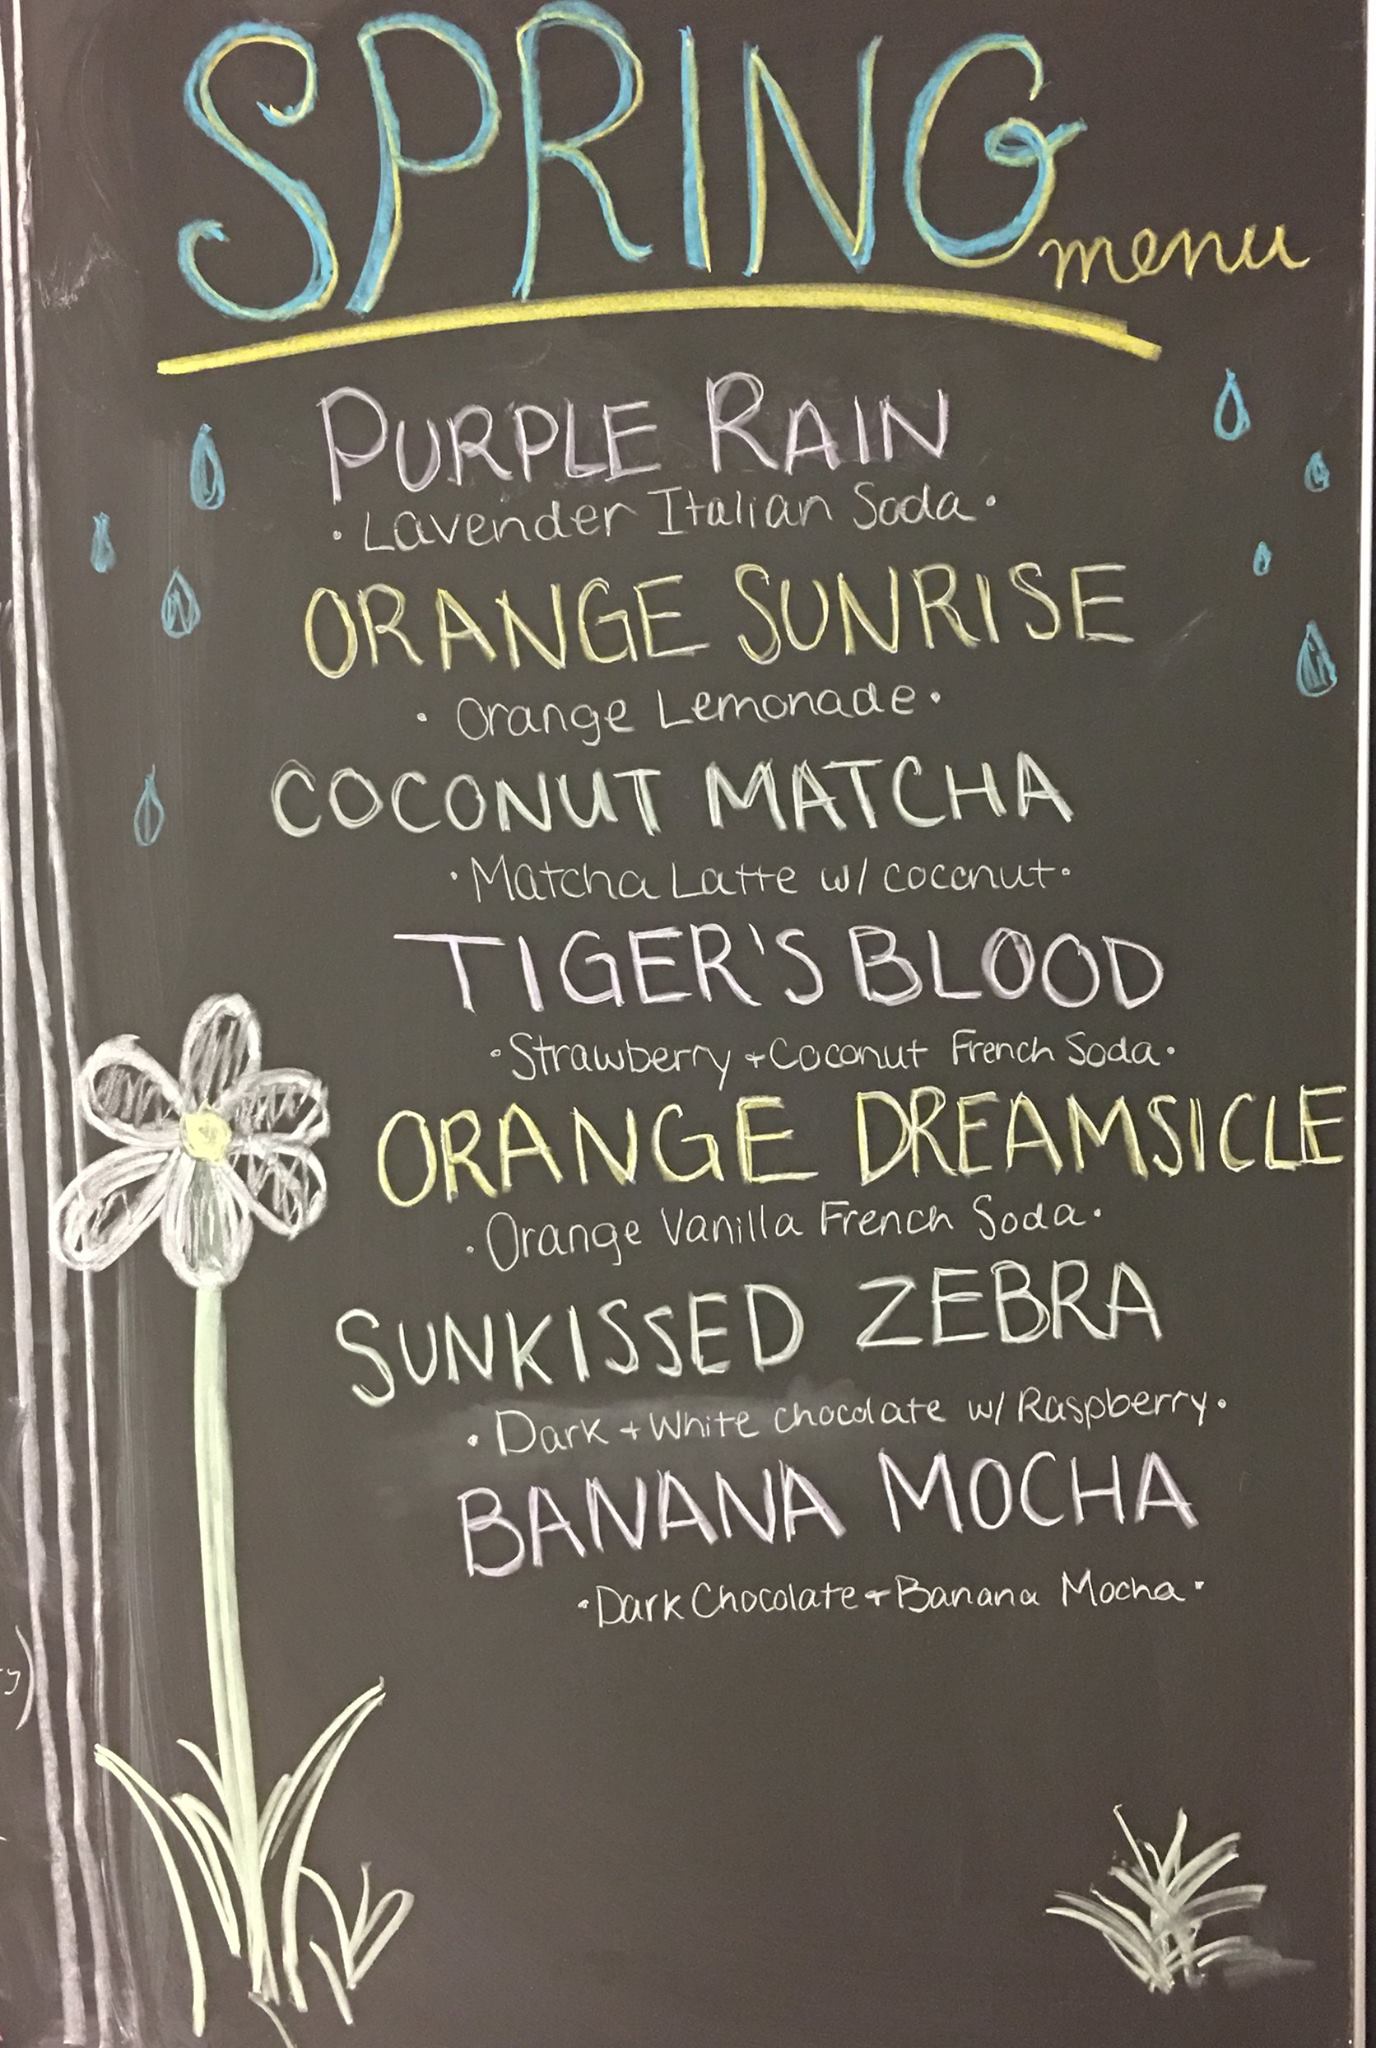 SPRING menu
PURPLE RAIN
• Lavender Italian Soda •
ORANGE SUNRISE
• Orange Lemonade •
COCONUT MATCHA
• Matcha Latte w/ coconut •
TIGER'S BLOOD
• Strawberry + Coconut French Soda •
ORANGE DREAMSICLE
• Orange Vanilla French Soda •
SUNKISSED ZEBRA
• Dark + White chocolate w/ Raspberry •
BANANA MOCHA
• Dark Chocolate + Banana Mocha •